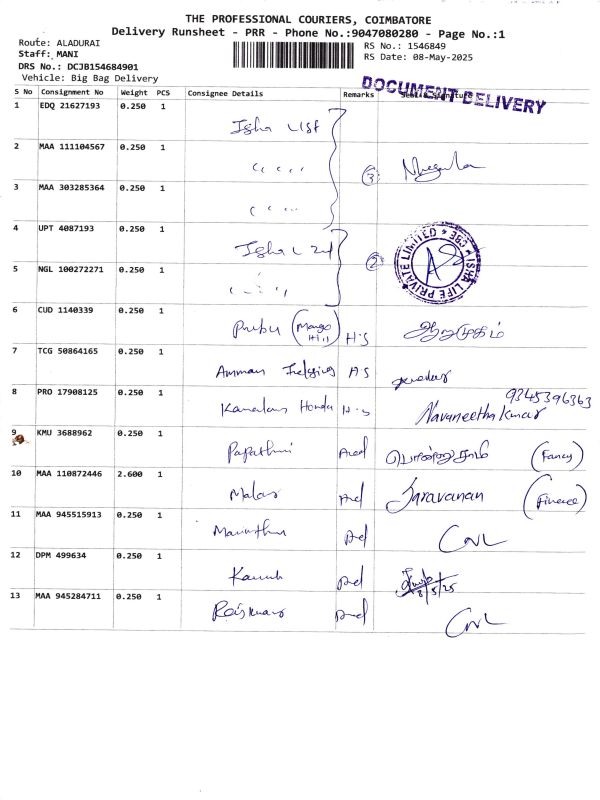 THE PROFESSIONAL COURIERS, COIMBATORE
Delivery Runsheet - PRR - Phone No.:9047080280 - Page No.:1
Route: ALADURAI
Staff: MANI
DRS No.: DCJB154684901
Vehicle: Big Bag Delivery
RS No.: 1546849
RS Date: 08-May-2025
DOCUMENT DELIVERY
S No Consignment No Weight PCS Consignee Details Remarks Seal & Signature
1 EDQ 21627193 0.250 1 Isha
2 MAA 111104567 0.250 1 " " 3
3 MAA 303285364 0.250 1 " "
4 UPT 4087193 0.250 1 Isha 2
ISHA LIFE PRIVATE LIMITED
5 NGL 100272271 0.250 1 " "
6 CUD 1140339 0.250 1 Prabu (Mango Hill) H.S ஆறுமுகம்
7 TCG 50864165 0.250 1 Amman H.S
8 PRO 17908125 0.250 1 Honda H.S Navaneetha Kumar 9345396363
9 KMU 3688962 0.250 1 (Fancy)
10 MAA 110872446 2.600 1 Malar Saravanan (Finance)
11 MAA 945515913 0.250 1 CNL
12 DPM 499634 0.250 1 8/5/25
13 MAA 945284711 0.250 1 Rajkumar CNL